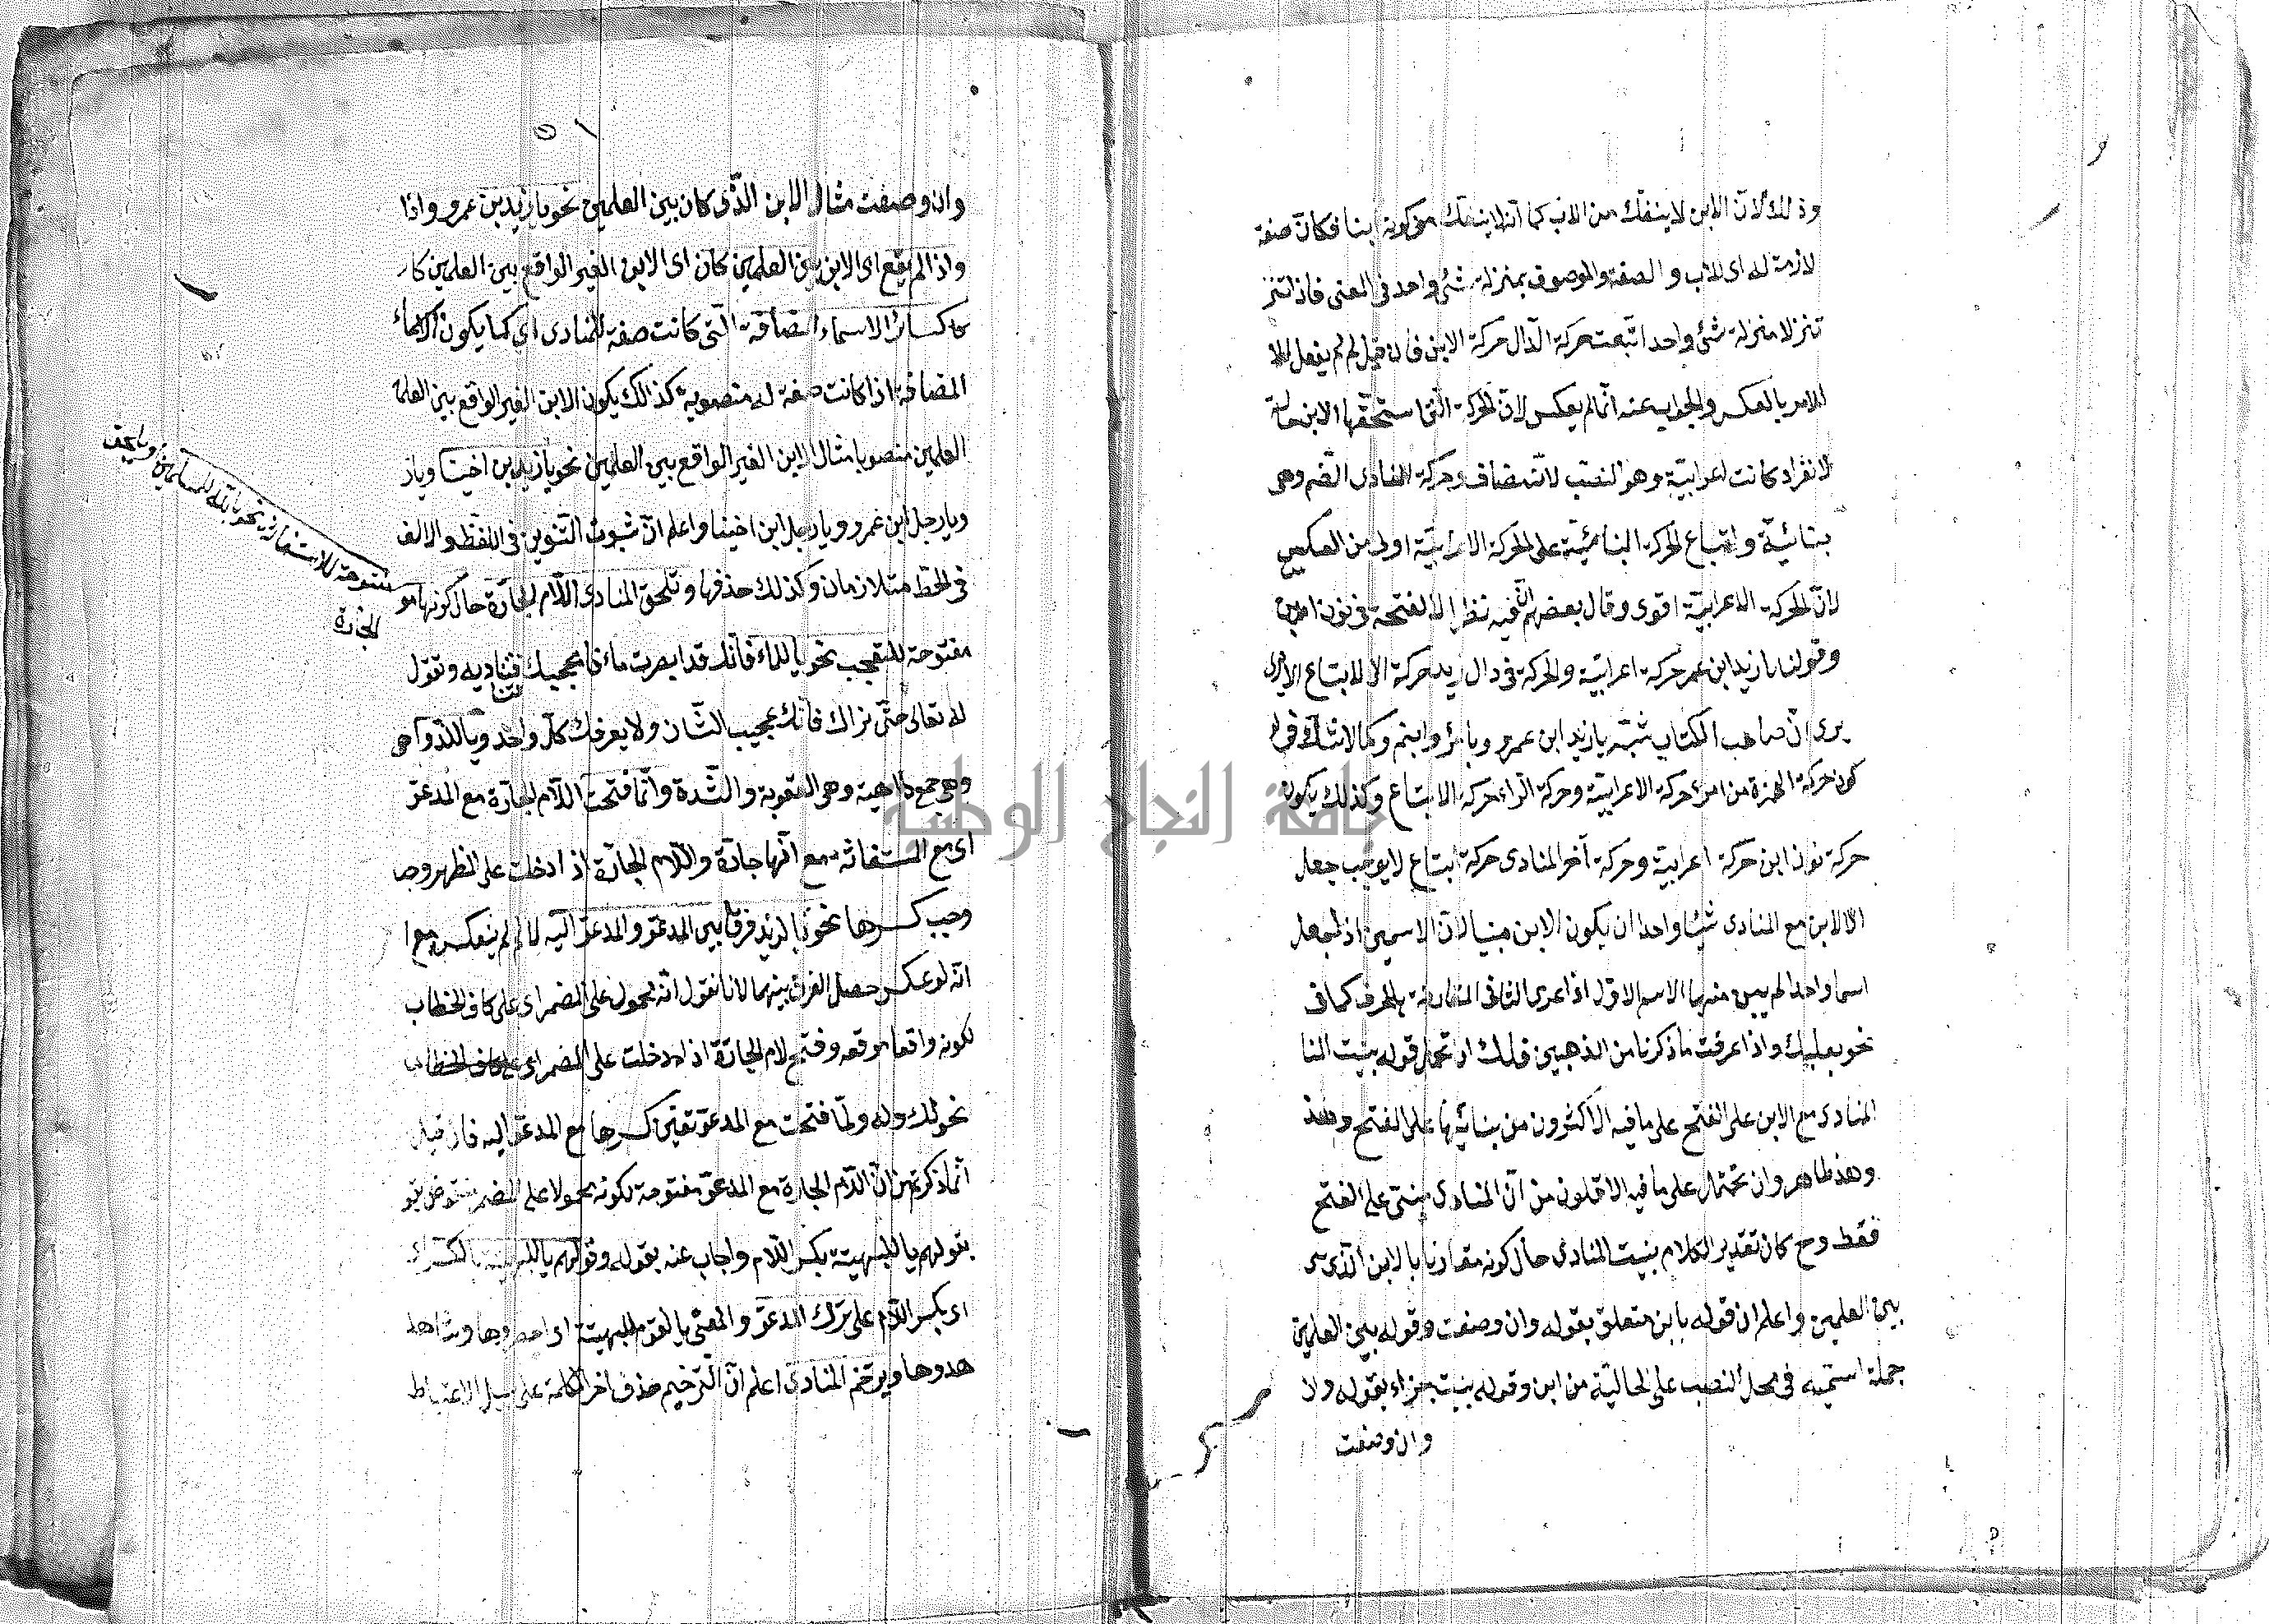 وذلك لان الابن لا ينفك من الاب كما انه لا ينفك من كونه ابنا فكان صفة
لازمة له اى للاب والصفة والموصوف بمنزلة شئ واحد فى المعنى فاذا تنز
تنزلا منزلة شئ واحد اتبعت حركة الدال حركة الابن فان قيل لم لم يفعل
الامر بالعكس والجواب عنه انما لم يعكس لان الحركة التى استحقها الابن حالة
الانفراد كانت اعرابية وهو النصب لانه مضاف وحركة المنادى الضم وهى
بنائية واتباع الحركة البنائية على الحركة الاعرابية اولى من العكس
لان الحركة الاعرابية اقوى وقال بعضهم فيه نظر لان الفتحة فى نون ابن
وقولنا يا زيد ابن عمر حركة اعرابية والحركة فى دال زيد حركة الاتباع الا
يرى ان صاحب الكتاب شبه يا زيد ابن عمرو وبامرؤ وابنم وكما لا شك فى
كون حركة الهمزة من امرئ حركة الاعرابية وحركة الراء حركة الاتباع وكذلك يكون
حركة نون ابن حركة اعرابية وحركة آخر المنادى حركة اتباع لا يوجب جعل
الابن مع المنادى شيئا واحدا ان يكون الابن مبنيا لان الاسمين اذا جعل
اسما واحدا لم يبين منهما الاسم الاول اذا عرى الثانى الحرف كما فى
نحو بعلبك واذا عرفت ما ذكرنا من المذهبين فلك ان تحمل قوله بنيت المنا
المنادى مع الابن على الفتح على ما فيه الاكثرون من بنائهما على الفتح وهذ
وهذ ظاهر وان تحتمل على ما فيه الاقلون من ان المنادى مبنى على الفتح
فقط وح كان تقدير الكلام بنيت المنادى حال كونه مقارنا بالابن الذى
بين العلمين واعلم ان قوله بابن متعلق بقوله وان وصفت وقوله بين العلمين
جملة اسمية فى محل النصب على الحالية من ابن وقوله بنيت جزاء بقوله وان
وان وصفت
وان وصفت مثال الابن الذى كان بين العلمين نحو يا زيد بن عمرو واذا
واذا لم يقع اى الابن بين العلمين كان اى الابن الغير الواقع بين العلمين كا
كسائر الاسماء المضافة التى كانت صفة للمنادى اى كما يكون الاسماء
المضافة اذا كانت صفة له منصوبة كذالك يكون الابن الغير الواقع بين العلم
العلمين منصوبا مثال الابن الغير الواقع بين العلمين نحو يا زيد بن اخينا ويار
ويا رجل ابن عمرو ويا رجل ابن اخينا واعلم ان ثبوت التنوين فى اللفظ والالف
فى الخط متلازمان وكذلك حذفها وتلحق المنادى اللام الجارة حال كونها مو
مفتوحة للتعجب نحو يا للماء فانك قد ابصرت ماء فاعجبك فتناديه وتقول
له تعالى حتى نراك فانك عجيب الشان ولا يعرفك كل واحد ويا للدواهى
وهى جمع داهية وهى العقوبة والشدة وانما فتحت اللام الجارة مع المدعو
اى مع المستغاثة مع انها جارة واللام الجارة اذ ادخلت على الظهر وجب
وجب كسرها نحو يا لزيد فرقا بين المدعو والمدعو اليه لم لم ينعكس مع ا
انه لو عكس حصل الفرق بينهما لانا نقول انه محمول على المضمر اى على كاف الخطاب
لكونه واقعا موقعه وفتح لام الجارة اذا دخلت على المضمر اى على كاف الخطاب
نحو لك وله ولما فتحت مع المدعو تعين كسرها مع المدعو اليه فان قيل
انما ذكرتم من ان اللام الجارة مع المدعو مفتوحة لكونه محمولا على المضمر منقوض بقو
بقولهم يا للبهيتة بكسر اللام واجاب عنه بقوله وقولهم يا للبهيتة بالكسر
اى بكسر اللام على ترك المدعو والمعنى يا لقوم للبهيتة اى احضروها وشاهد
هدوها ويرخم المنادى اعلم ان الترخيم حذف اخر الكلمة على سبيل الاعتباط
مفتوحة للاستغاثة نحو يا لله للمسلمين وتلحق
الجارة
جامعة النجاح الوطنية